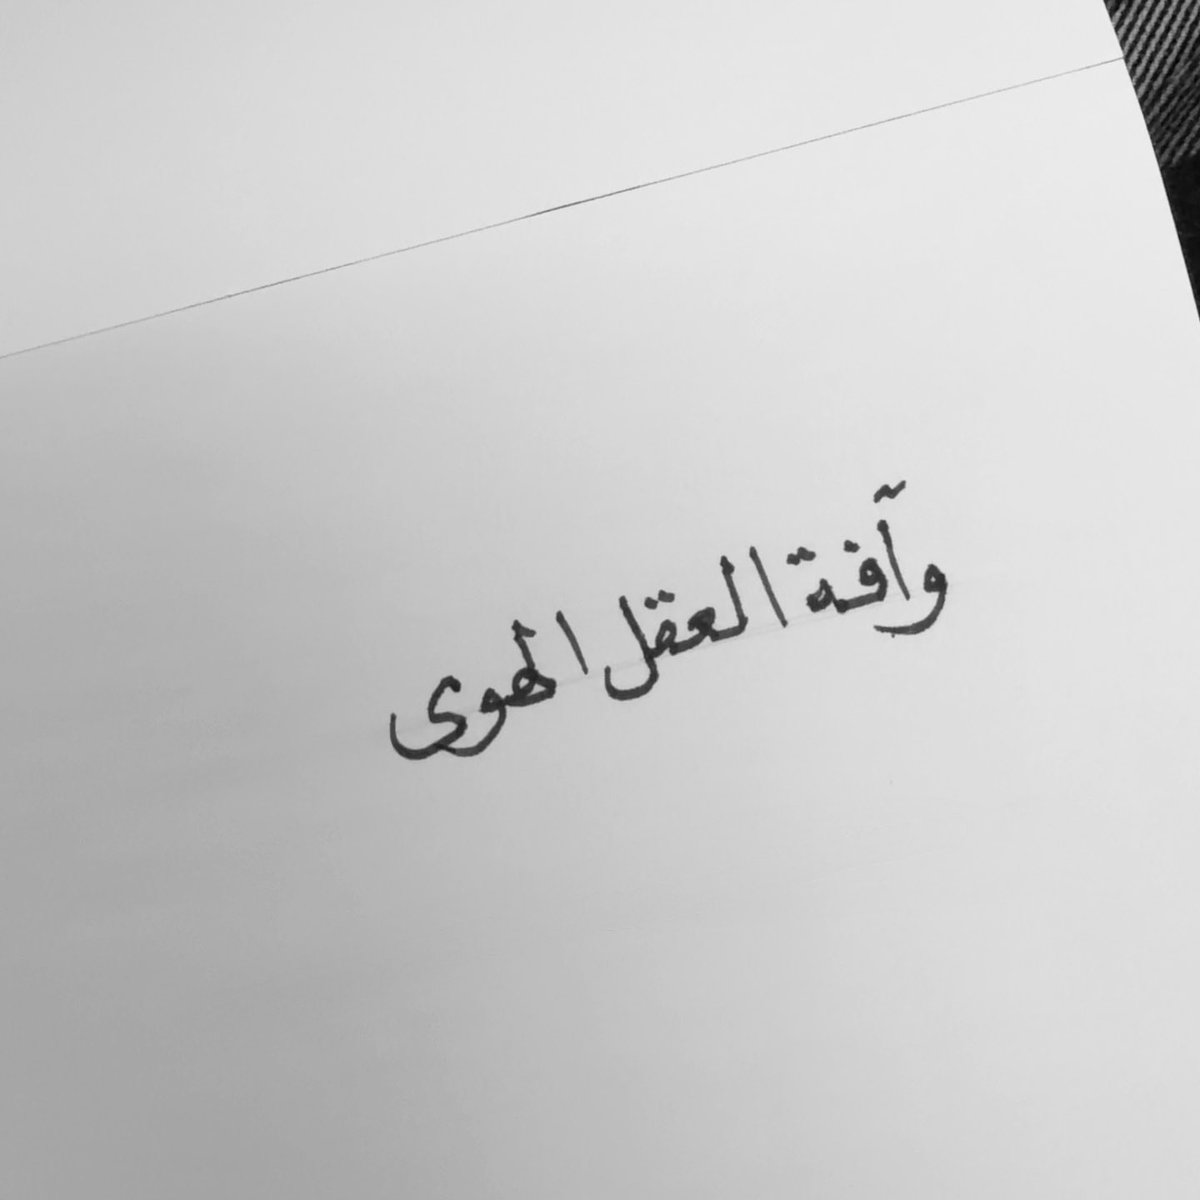 وآفة العقل الهوى